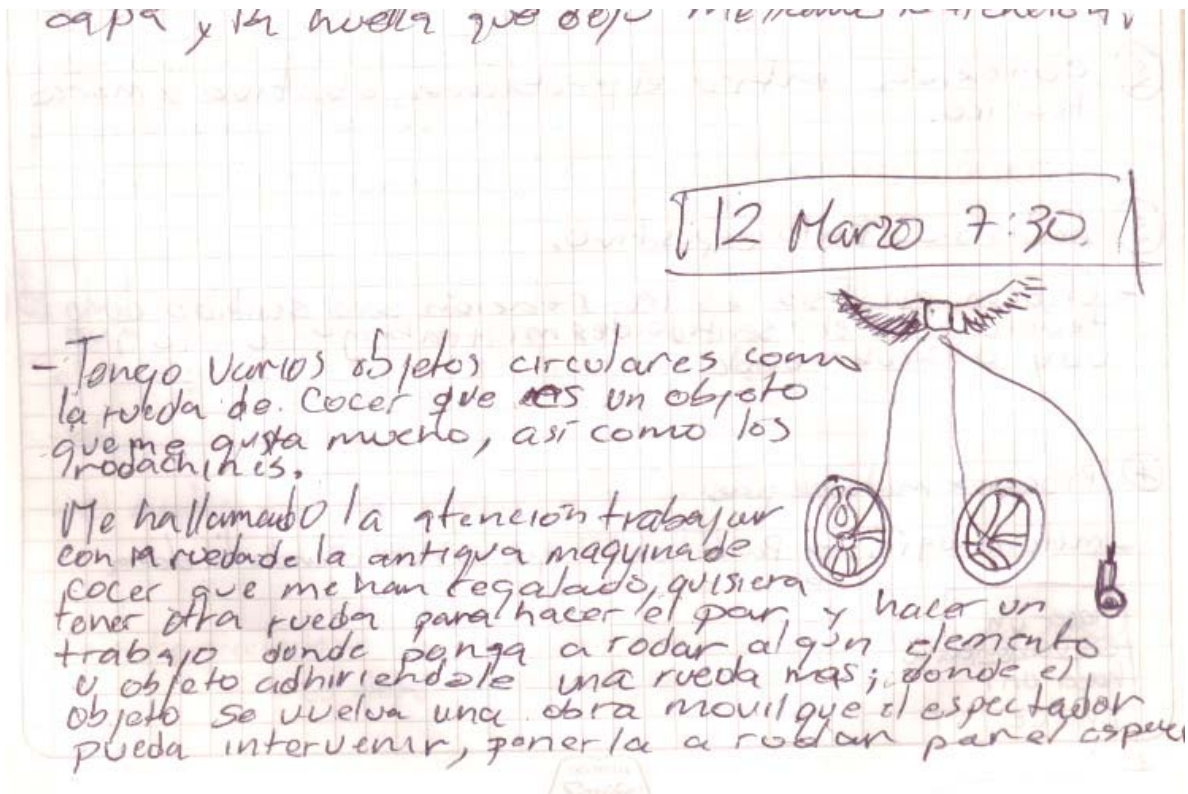 capa y la huella que dejo me llama la atención.
12 Marzo 7:30.
- Tengo varios objetos circulares como
la rueda de cocer que es un objeto
que me gusta mucho, así como los
rodachines.
Me ha llamado la atención trabajar
con la rueda de la antigua maquina de
cocer que me han regalado, quisiera
tener otra rueda para hacer el par, y hacer un
trabajo donde ponga a rodar algún elemento
u objeto adhiriendole una rueda mas; donde el
objeto se vuelva una obra movil que el espectador
pueda intervenir, ponerla a rodar por el